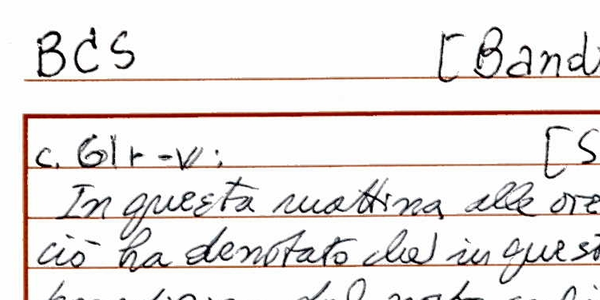 BCS [Band
c. 61r-v: [S
In questa mattina alle ore
ciò ha denotato che in quest